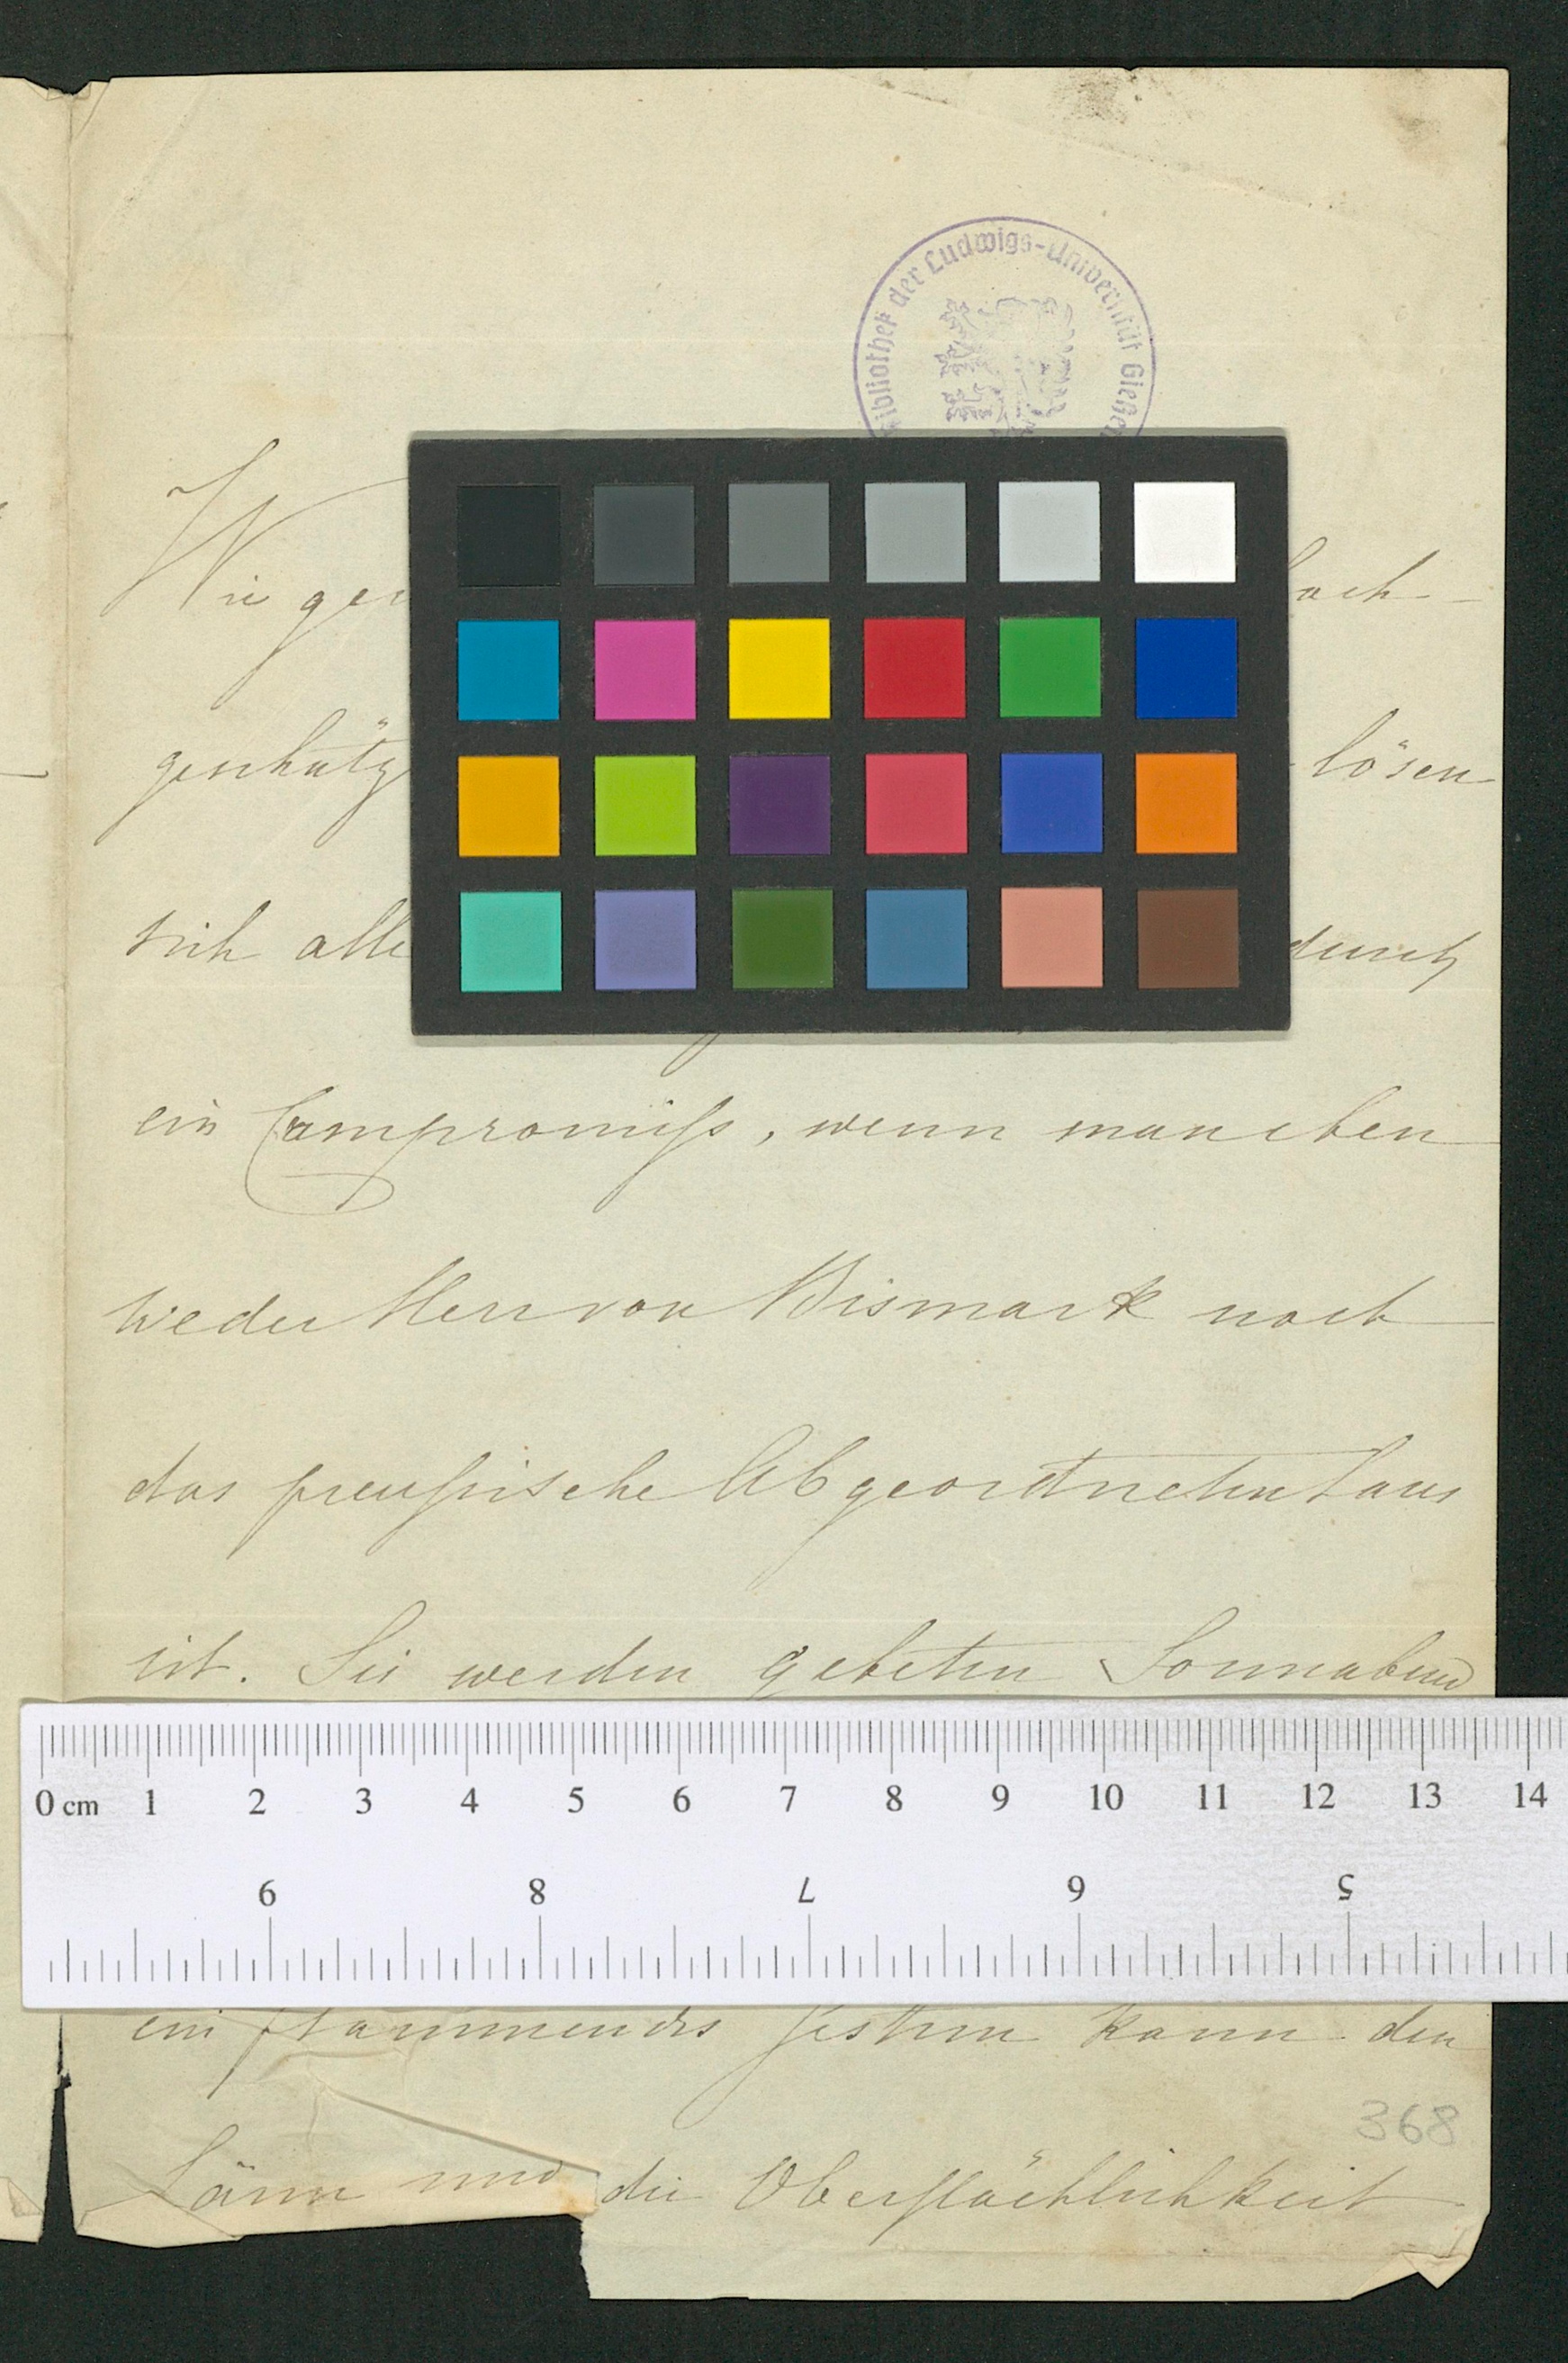 Bibliothek der Ludwigs-Universität Gießen
Wie ge
och-
geschätz
lösen
sich alle
durch
ein Compromiß, wenn man eben
weder Herr von Bismark noch
das preußische Abgeordnetenhaus
ist. Sie werden gebeten Sonnabend
0 cm 1 2 3 4 5 6 7 8 9 10 11 12 13 14
9 8 7 6 5
ein flammendes kann den
368
Lärm und die Oberflächlichkeit